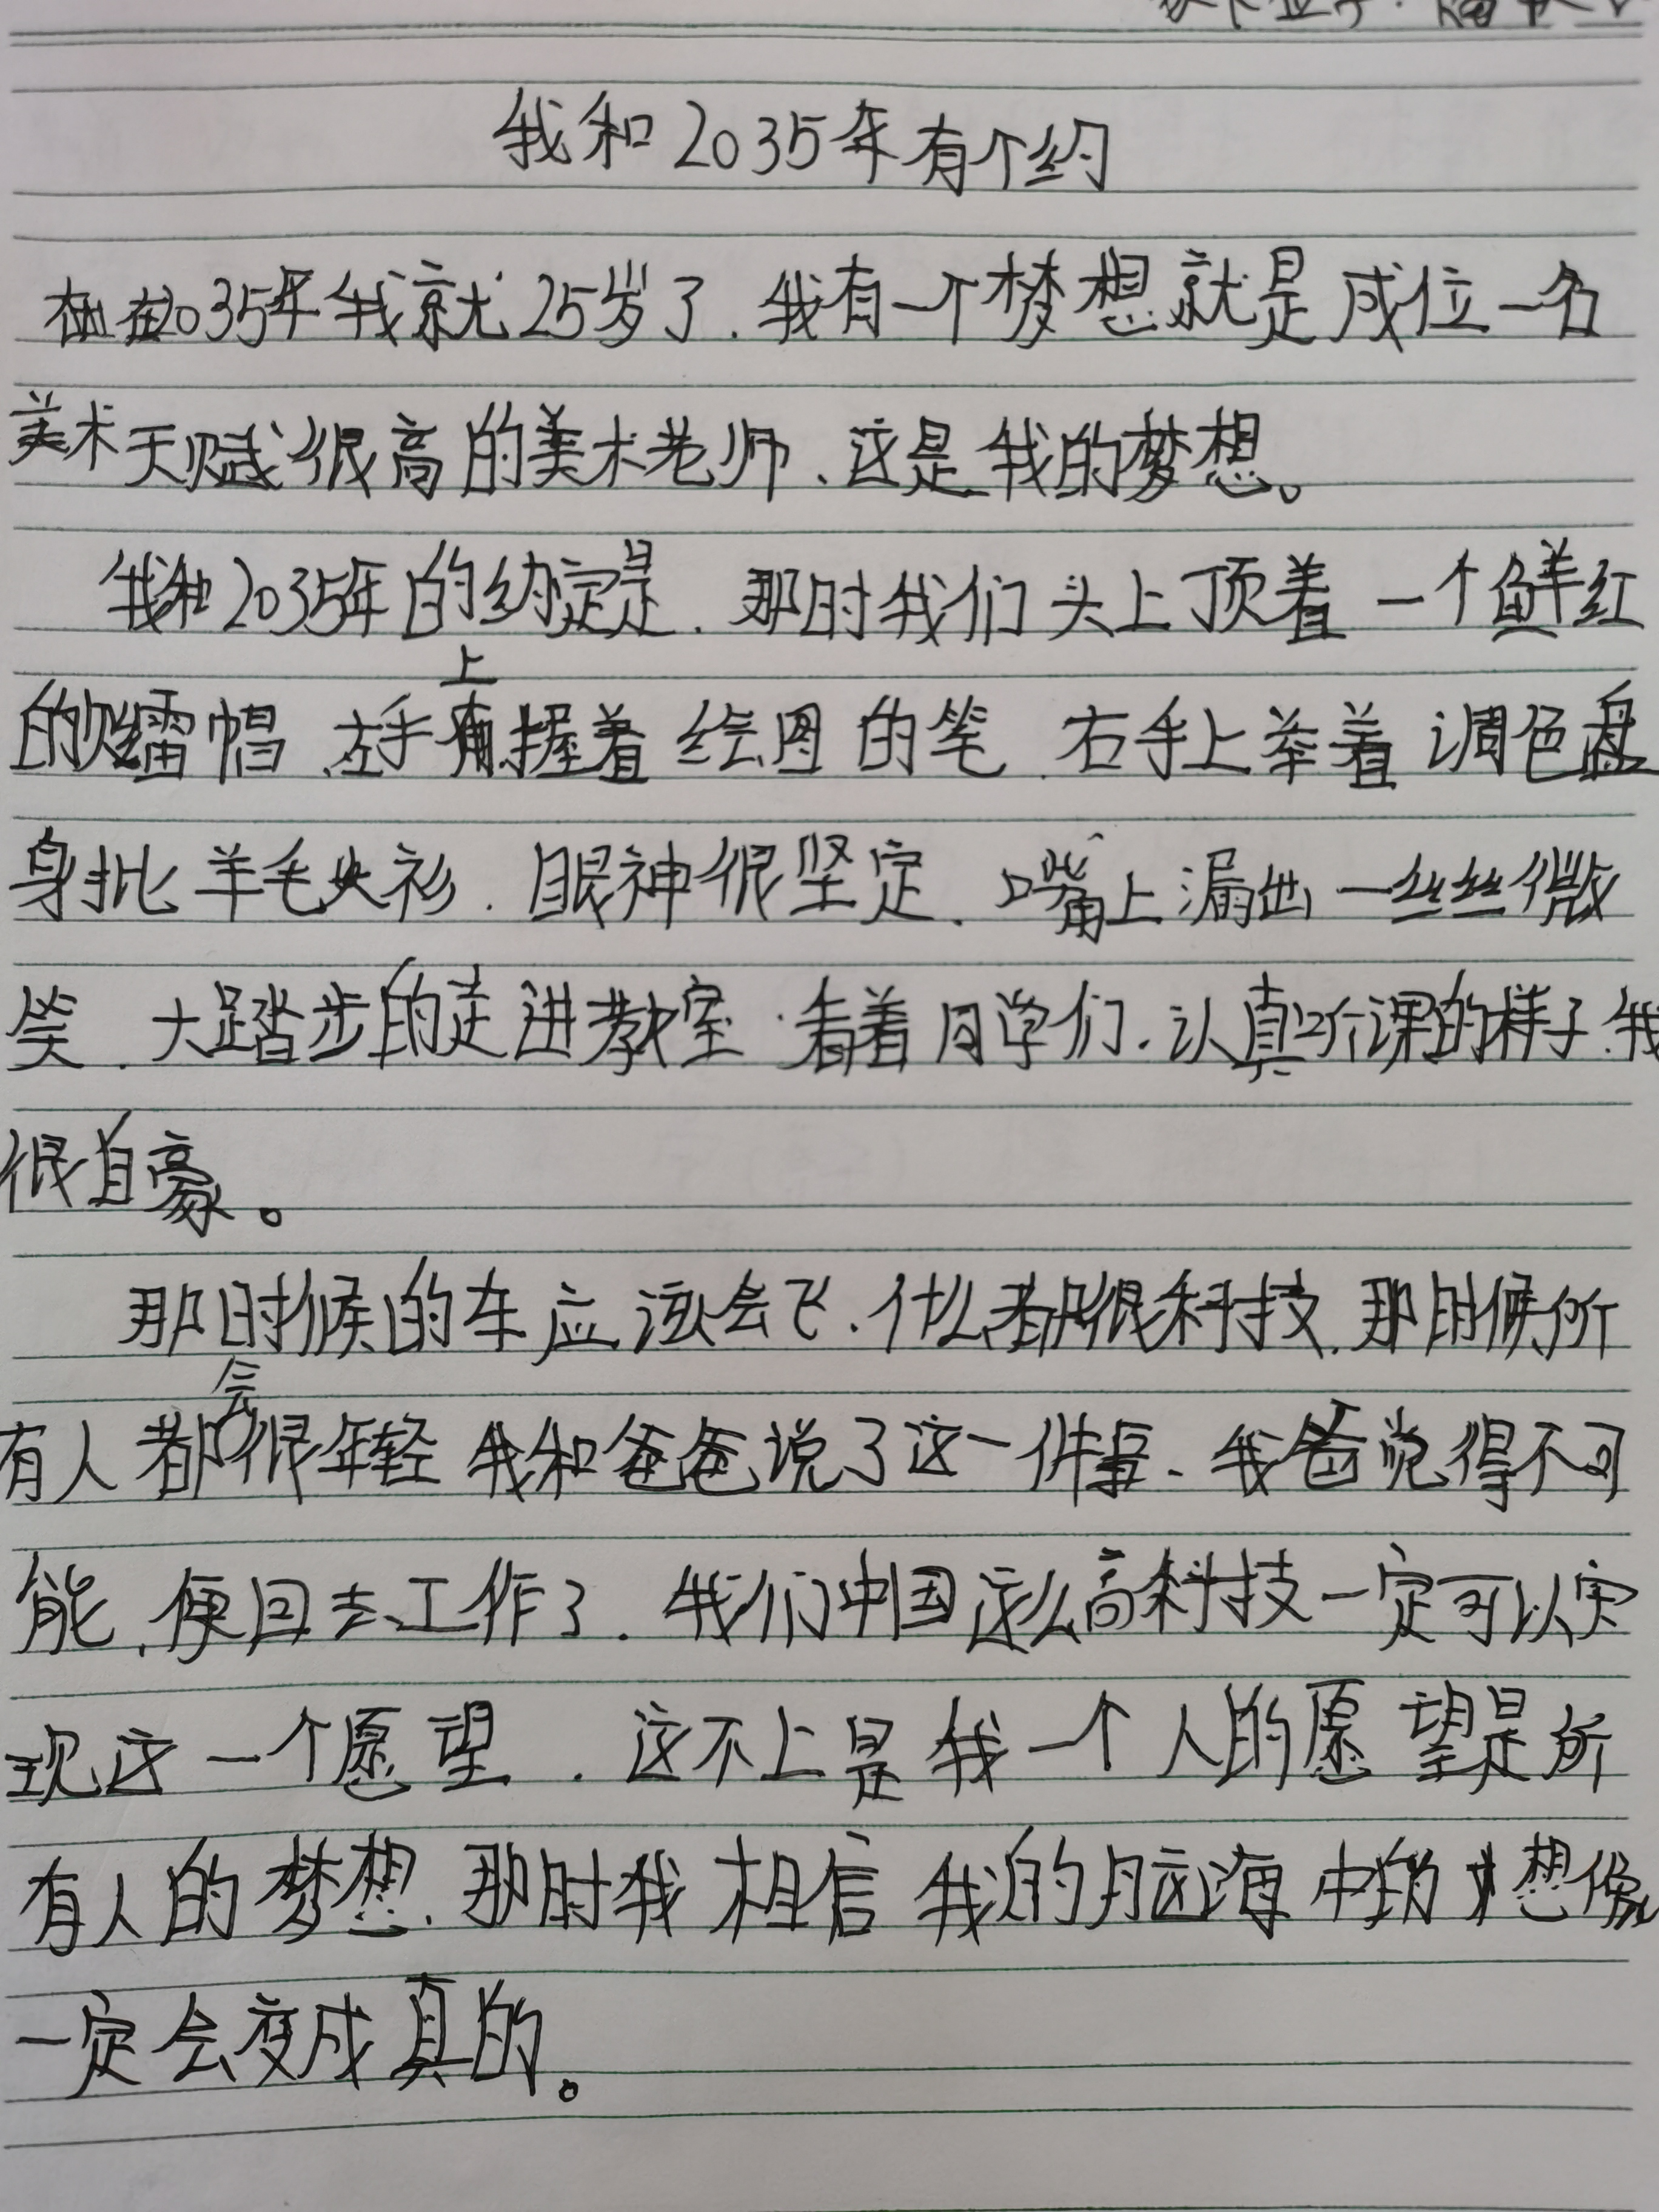 我和2035年有个约
在2035年我就25岁了.我有一个梦想就是成位一名
美术天赋很高的美术老师、这是我的梦想。
我和2035年的约定是.那时我们头上顶着一个鲜红
的贝雷帽、左手上握着绘图的笔.右手上举着调色盘
身批羊毛大衫.眼神很坚定、嘴上漏出一丝丝微
笑.大踏步的走进教室.看着同学们.认真听课的样子.我
很自豪。
那时候的车应该会飞.什么都很科技.那时候所
有人都会很年轻 我和爸爸说了这一件事、我爸觉得不可
能、便回去工作了.我们中国这么高科技一定可以实
现这一个愿望.这不上是我一个人的愿望是所
有人的梦想.那时我相信我的脑海中的想像
一定会变成真的。